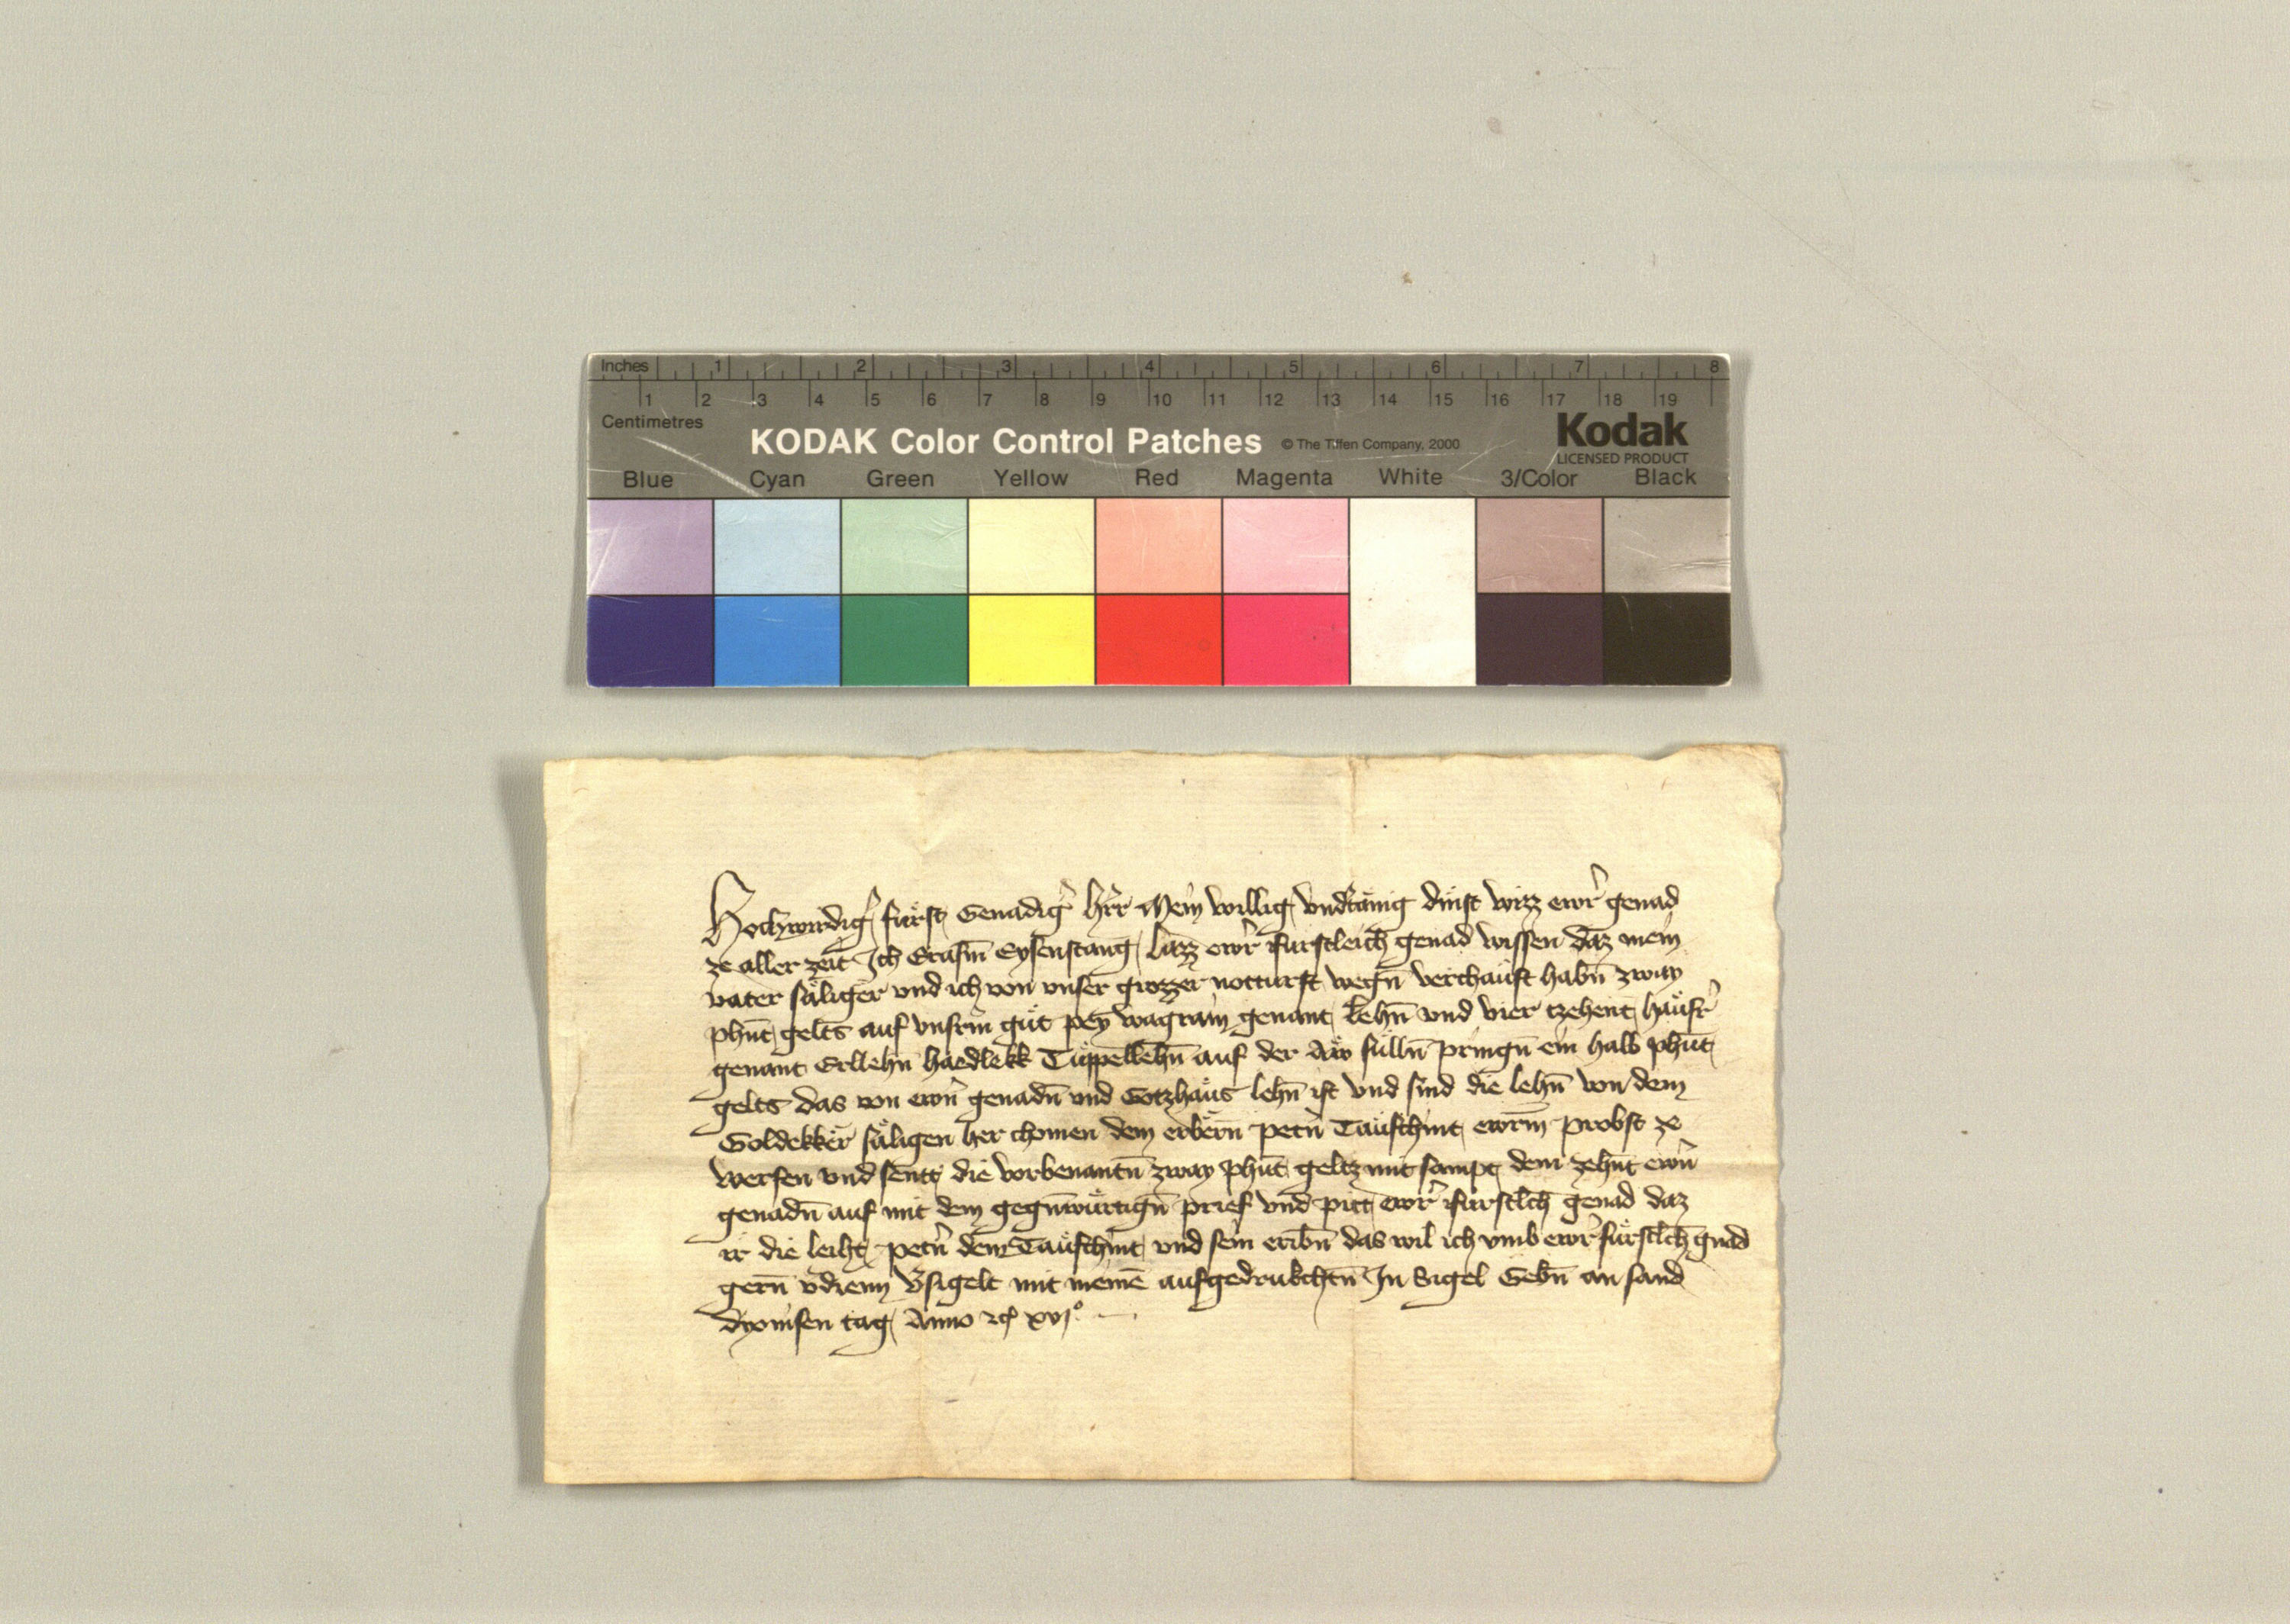 Inches 1 2 3 4 5 6 7 8
1 2 3 4 5 6 7 8 9 10 11 12 13 14 15 16 17 18 19
Centimetres
KODAK Color Control Patches © The Tiffen Company, 2000 Kodak
LICENSED PRODUCT
Blue Cyan Green Yellow Red Magenta White 3/Color Black
Hochwirdig' fürst Genadig' h'rr Mein willig vnd'tänig dinst wizz ewr' genad
ze aller zeit Ich Erasm Eysenstang lazz ewr' fürstleich genad wissen daz mein
vater säliger vnd ich von vnser grozzer notturft wegn̄ verchauft habn̄ zway
phūt gelts auf vnsrm güt pey wagram genant Lehn̄ vnd vier zehent häusr'
genant Erllehn̄ haedlekk Tüppellehn̄ auf der Aw fülln̄ pringn̄ ein halb phūt
gelts das von ewn̄ genadn̄ vnd Gotzhaus lehn̄ ist vnd sind die lehn̄ von dem
Goldekker säligen her chomen dem erbern̄ petn̄ Täufchint ewrm probst ze
werfen vnd sentt die vorbenantn̄ zway phūt geltz mit sampt dem zehnt ewn̄
genadn̄ auf mit dem gegn̄würtign̄ prief vnd pitt ewr' fürstlch̄ genad daz
ir die leiht petn̄ dem Täufchint vnd sein eribn̄ das wil ich vmb ewr' fürstlch̄ gnad
gern̄ v'dienn V'sigelt mit meinē aufgedrukchtn̄ In Sigel Gebn̄ an sand
dyonisen tag Anno xvjº